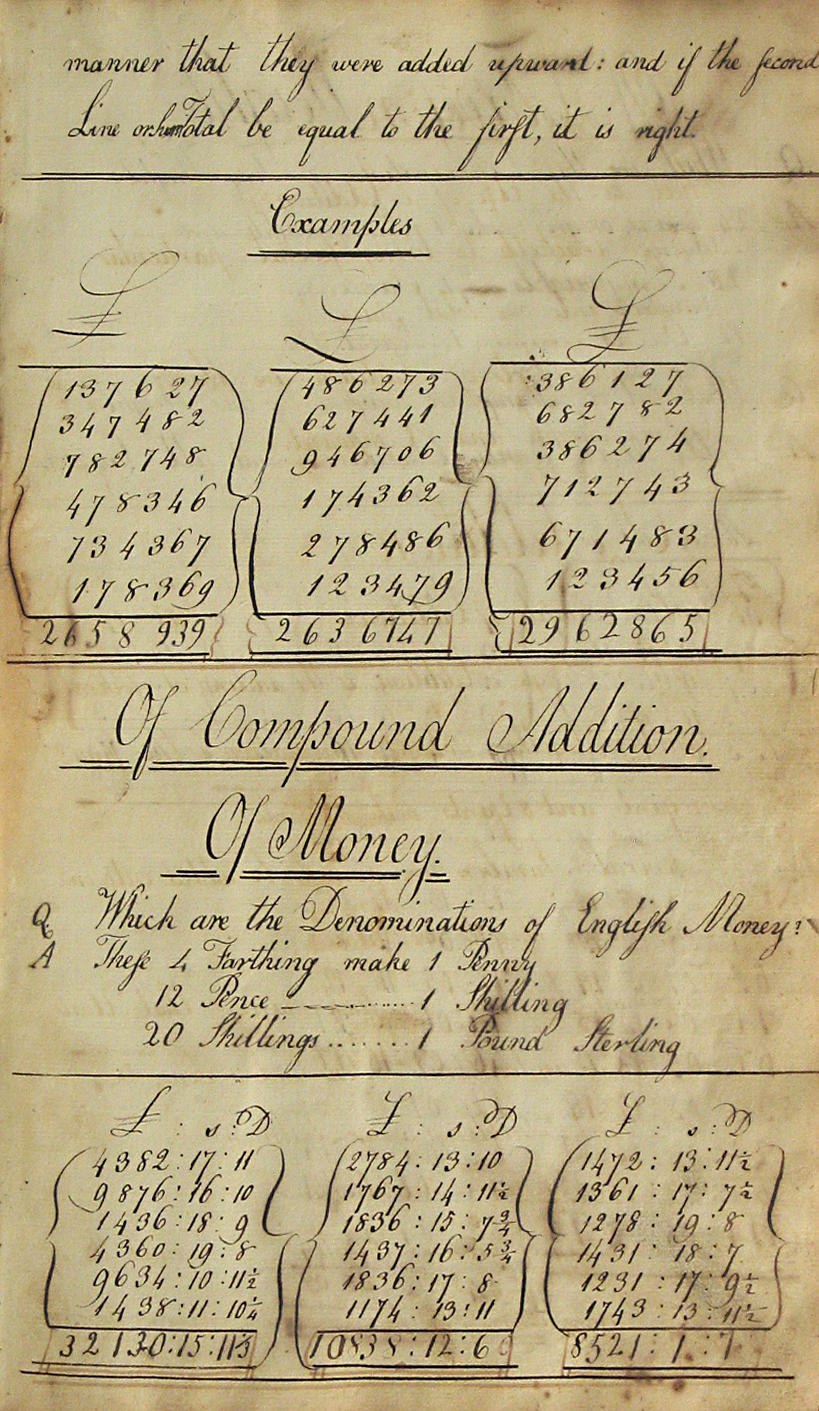 manner that they were added upward: and if the second
Line or Sum Total be equal to the first, it is right.
Examples
£ £ £
137627 486273 386127
347482 627441 682782
782748 946706 386274
478346 174362 712743
734367 278486 671483
178369 123479 123456
2658939 2636747 2962865
Of Compound Addition.
Of Money.
Q Which are the Denominations of English Money?
A These 4 Farthing make 1 Penny
12 Pence 1 Shilling
20 Shillings 1 Pound Sterling
£ : s : D £ : s : D £ : s : D
4382:17:11 2784:13:10 1472:13:11½
9876:16:10 1767:14:11½ 1361:17:7½
1436:18:9 1836:15:7¾ 1278:19:8
4360:19:8 1437:16:5¾ 1431:18:7
9634:10:11½ 1836:17:8 1231:17:9½
1438:11:10¼ 1174:13:11 1743:13:11½
32130:15:11¾ 10838:12:6 8521:1:7